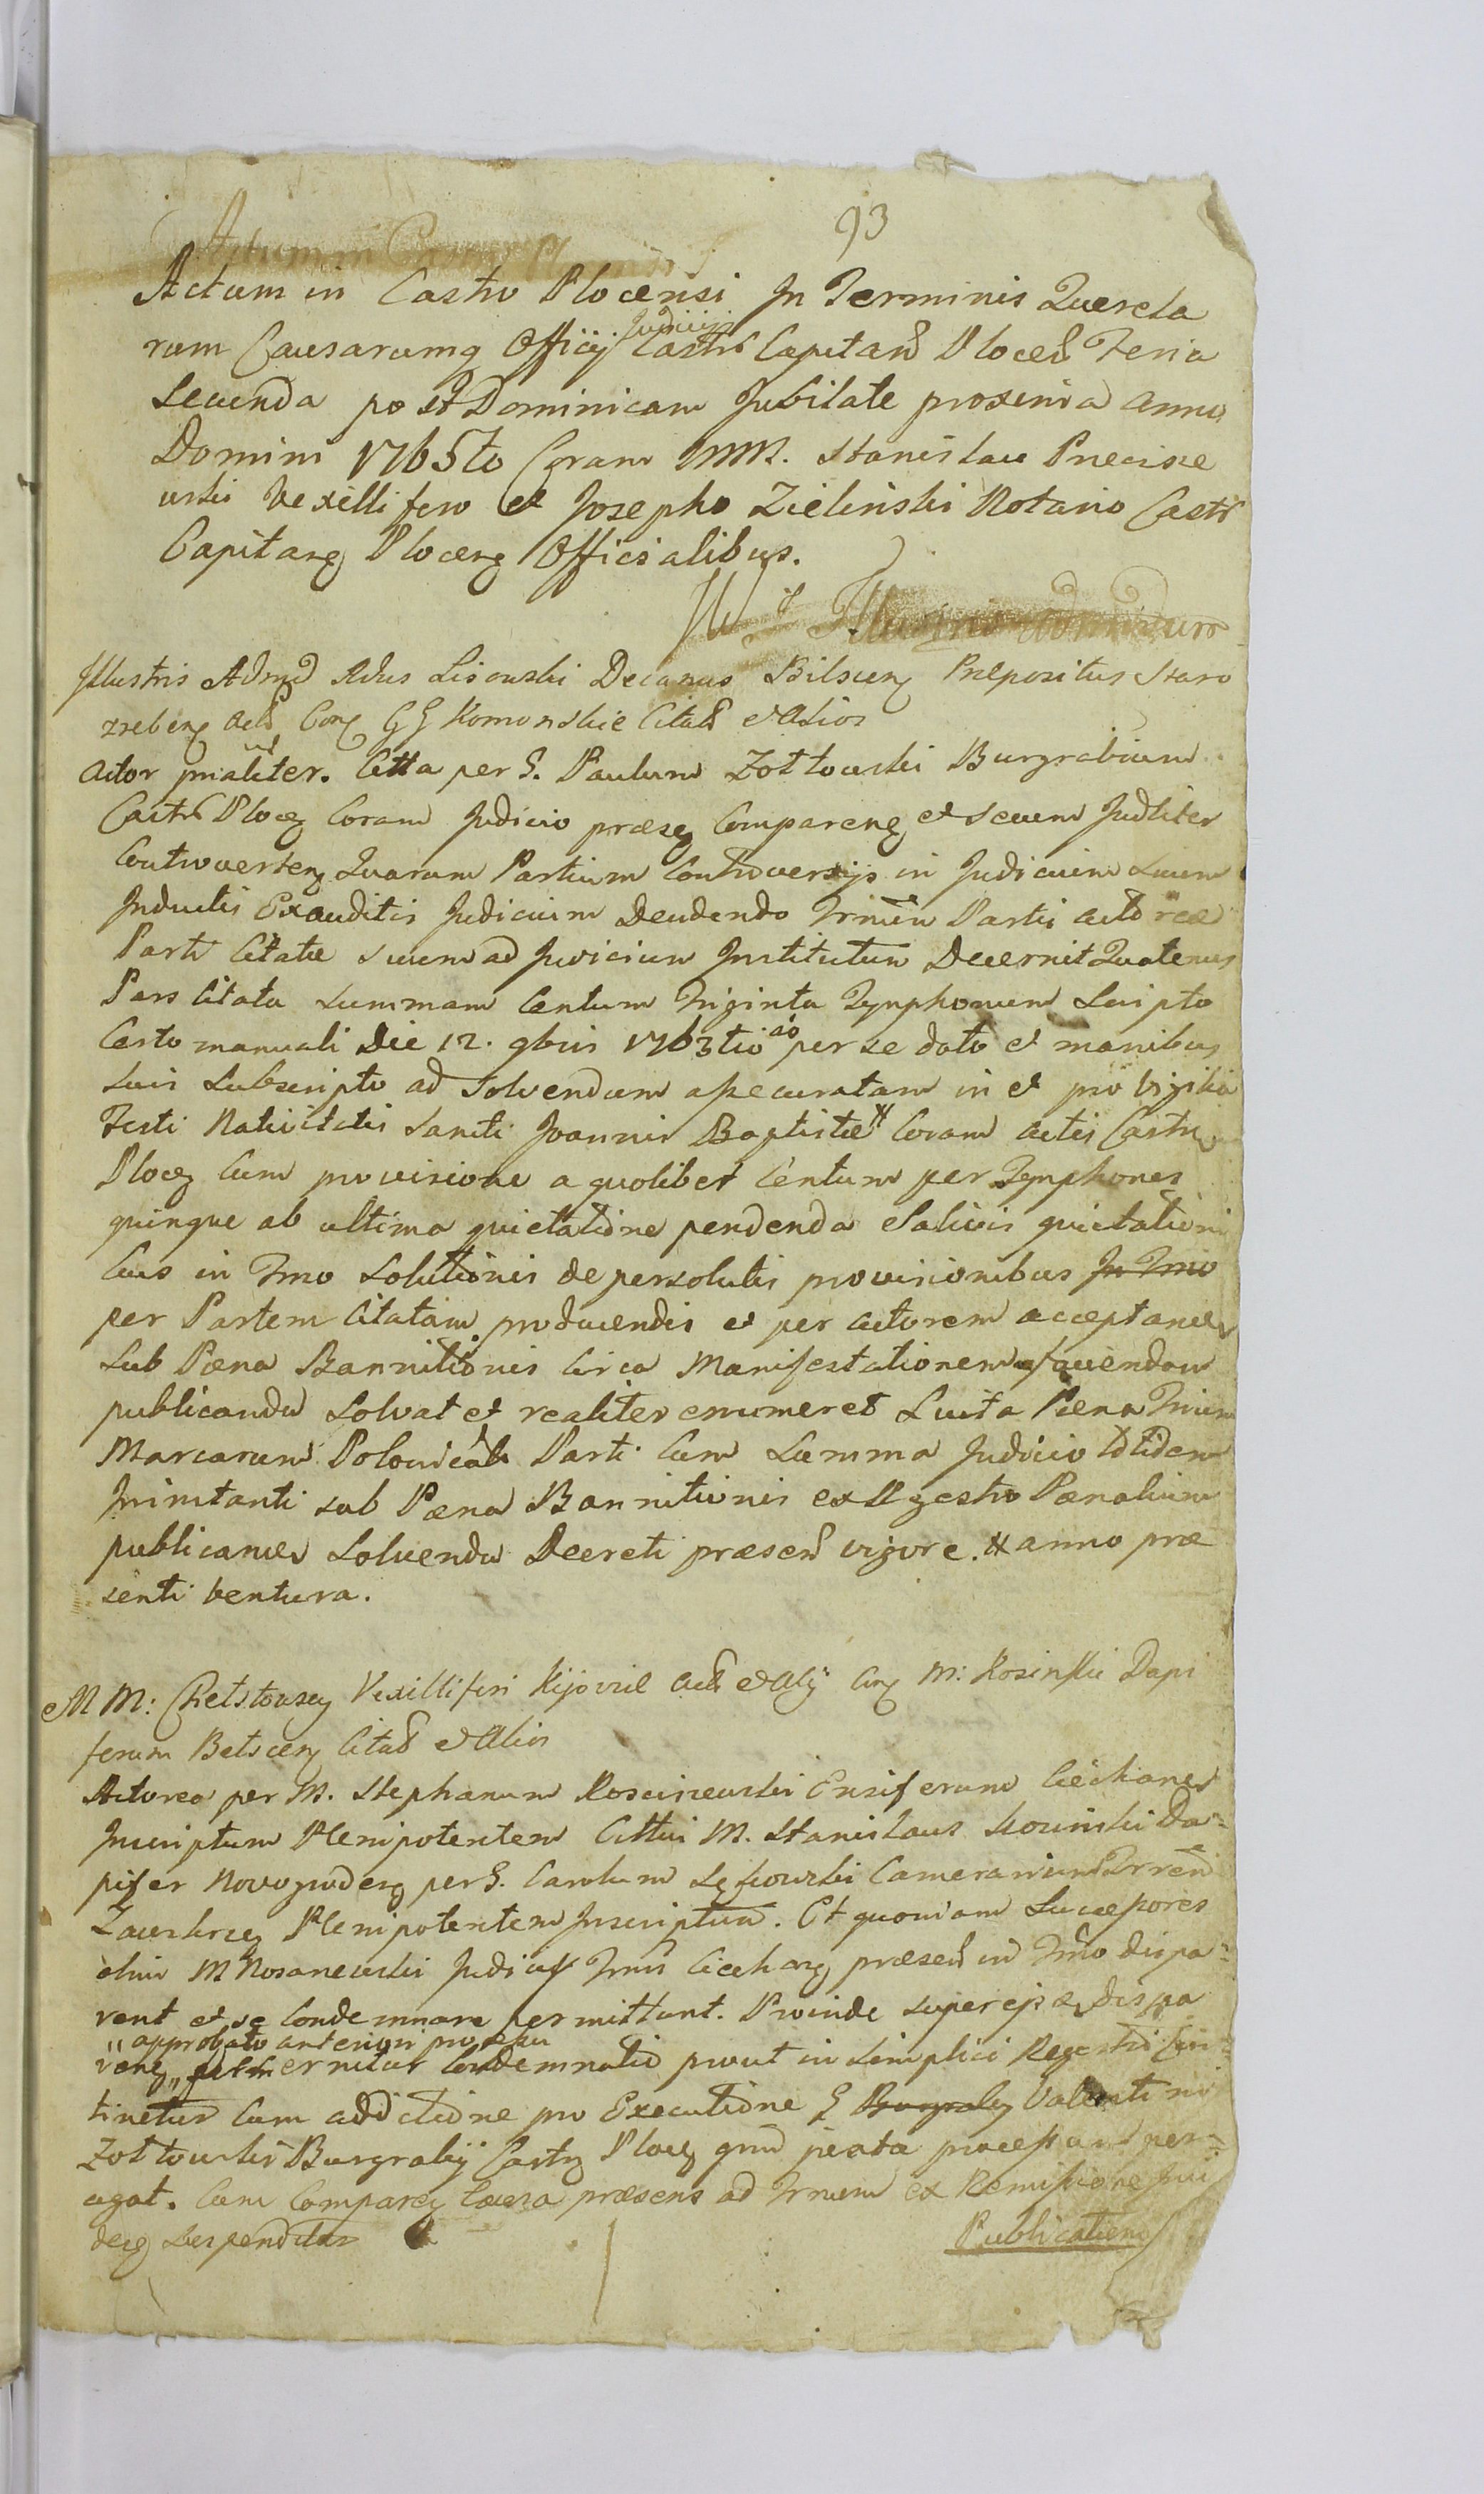 93
Actum in Castro Plocensi In Terminis Querela
rum Causarumq Officij Judicijs Castr Capitan Plocen Feria
Secunda post Dominicam Jubilate proxima anno
Domini 1765to Coram MM. Stanislao Precisze
wski Vexillifero et Josepho Zielinski Notario Castr
Capitang Ploceng Officialibus.
Illustris Admd Rdus Lisowski Decanus Bilsceng Præpositus Staro
zrebeng act Cong GG Komorskie Citat et Alios
Actor prialiter. Citta per G. Paulum Zołtowski Burgrabium
Castr Ploceg Coram Judicio præseg Compareng et Seum Judliter
Controverteng Quarum Partium Controversijs in Judicium Suum
Inductis Exauditis Judicium Deudendo Trmin Partis actoreæ
Parti Citatæ suum ad Judicium Institutum Decernit Quatenus
Pars Citata Summam Centum Triginta Tynphonum Scripto
Certo manuali Die 12. 9bris 1763tio ao per se dato et manibus
suis Subscripto ad Solvendum assecuratam in et pro Vigilia
Festi Nativitatis Sancti Joannis Baptistæ # Coram actis Castren
Ploceg Cum provisione a quolibet Centum per Tynphones
quinque ab ultima quietatione pendenda Salvis quietationi
bus in Trmo Solutionis de persolutis provisionibus In Trmo
per Partem Citatam producendis et per actorem acceptandis
Sub Pæna Bannitionis Circa Manifestationem faciendam
publicanda Solvat et realiter enumeret Luita Pæna Trium
Marcarum Polonical Parti Cum Summa Judicio totidem
Inimtanti sub Pæna Bannitionis ex Regestro Pænalium
publicandæ Solvenda Decreti præsen vigore. # anno præ
senti ventura.
MM: Chelstowscy Vexilliferi Kijoviæ act et Alij Cong M: Kosinski Dapi
ferum Belsceng Citat et Alios
Actorea per M. Stephanum Kosciszewski Ensiferum Ciechanen
Inscriptum Plenipotentem Cittus M. Stanislaus Kosinski Da=
pifer Novogrodeng per G. Carolum Lękowski Camerarium Trren
Zawskrzeg Plenipotentem Inscriptum. Et quoniam Succepores
olim M Rosanewski Judicis Trris Ciechang præsen in Trmo dispa=
rent et se Condemnare permittunt. Proinde super ejs disspa
"approbato anteriori processu
reng,, decernitur Condemnatio prout in Simplici Regestro Con=
tinetur Cum addictione pro Executione G Burgraby Valentini
Zołtowski Burgrabij Castr Ploceg qnd juxta processum per=
agat. Cum Compareg Causa præsens ad Trmum ex Remissione Jui
deg Suspenditur
Publicatum